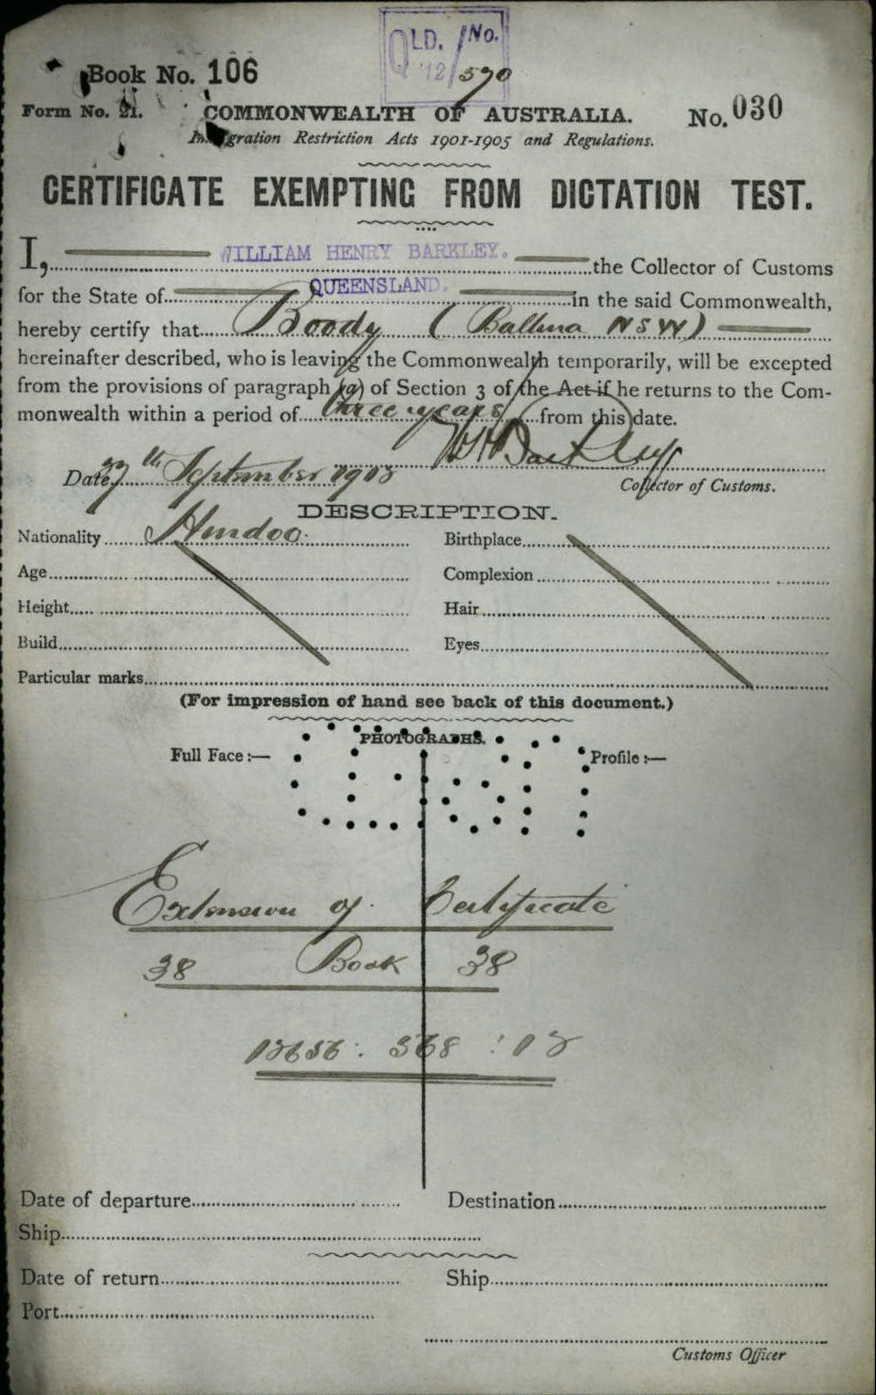 QLD. No.
'12/590
Book No. 106
Form No. 21.
COMMONWEALTH OF AUSTRALIA.
No. 030
Immigration Restriction Acts 1901-1905 and Regulations.
CERTIFICATE EXEMPTING FROM DICTATION TEST.
I, WILLIAM HENRY BARKLEY. the Collector of Customs
for the State of QUEENSLAND. in the said Commonwealth,
hereby certify that Boody (Ballina NSW)
hereinafter described, who is leaving the Commonwealth temporarily, will be excepted
from the provisions of paragraph (a) of Section 3 of the Act if he returns to the Com-
monwealth within a period of three years from this date.
WHBarkley
Date 27th September 1912
Collector of Customs.
DESCRIPTION.
Nationality Hindoo
Birthplace
Age
Complexion
Height
Hair
Build
Eyes
Particular marks
(For impression of hand see back of this document.)
PHOTOGRAPHS.
Full Face:—
Profile:—
Extension of Certificate
38 Book 38
368
Date of departure
Destination
Ship
Date of return
Ship
Port
Customs Officer